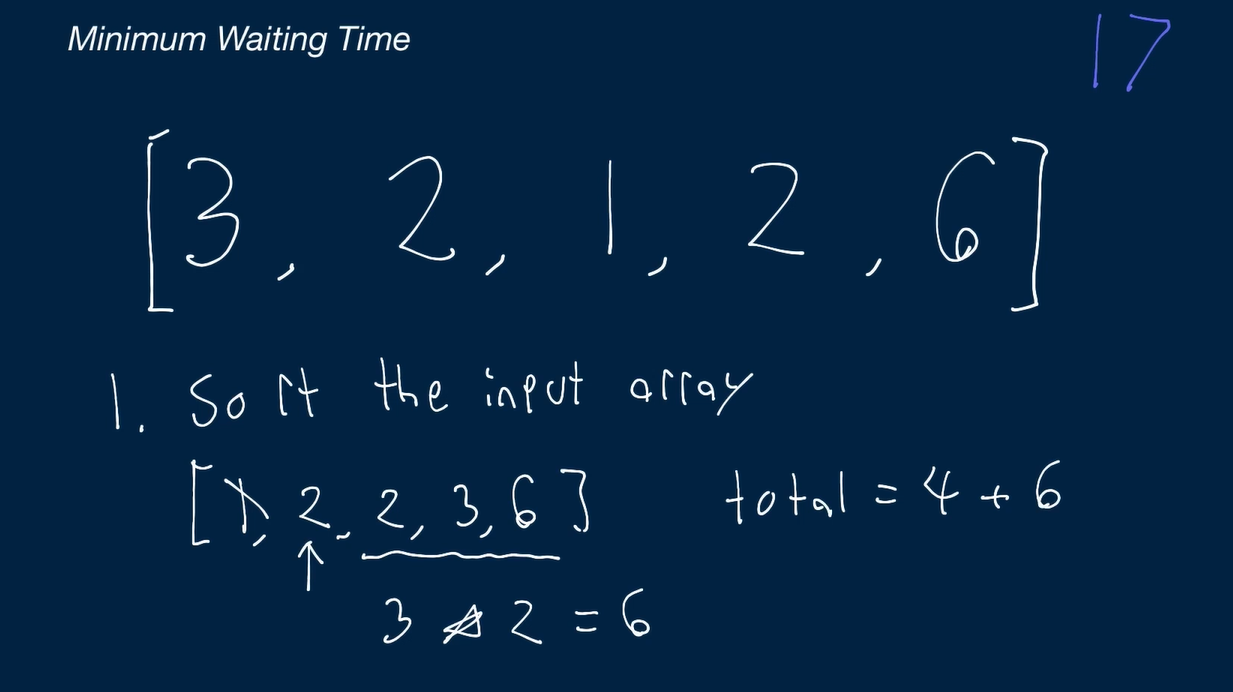 Minimum Waiting Time
17
[3, 2, 1, 2, 6]
1. Sort the input array
[1, 2, 2, 3, 6]
total = 4 + 6
3 * 2 = 6